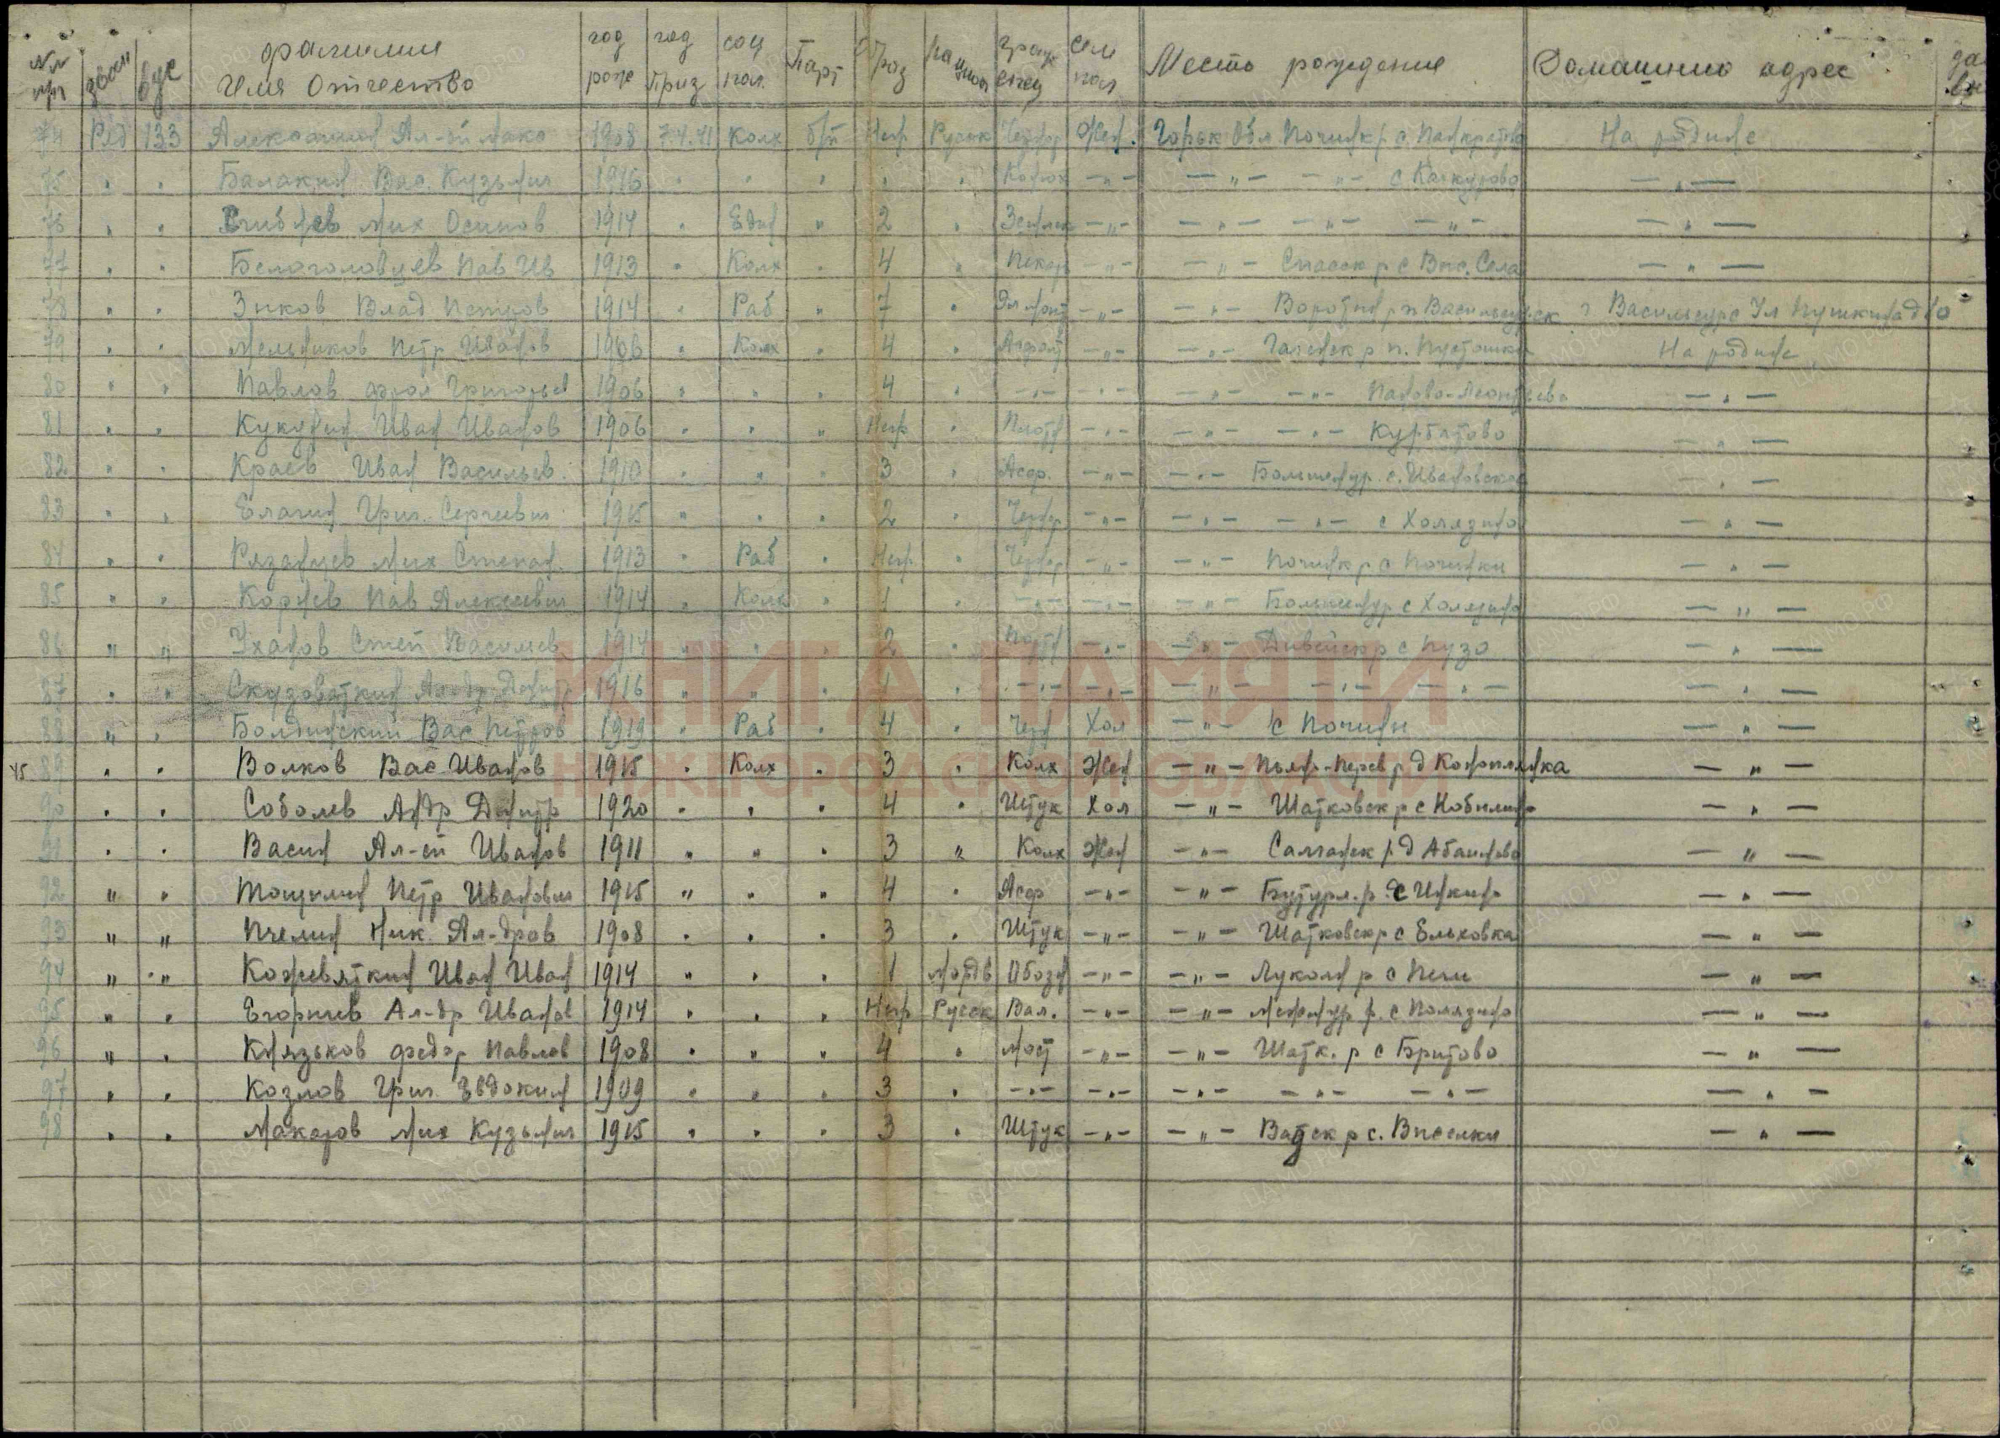 №№ п/п зван вус фамилия Имя Отчество год рож год приз соц пол. Парт Враз национ семей пол Место рождения Домашний адрес
74 Ряд 133 1908 7.4.41 Колх б/п Негр Русск Чернор Жен. Горьк Обл Починк р с. Панкратово На родине
75 " " Балакин Вас. Кузьмич 1916 " " " " " -"- -"- -"- с Качкурово -"-
76 " " Мих Осипов 1914 " Един " 2 " -"- -"- -"- -"- -"-
77 " " Белоголовцев Пав Ив 1913 " Колх " 4 " Пекарь -"- -"- Спасск р с Выс. Села -"-
78 " " Зыков Влад Петров 1914 " Раб " 7 " -"- -"- Воротын р п Васильсурск г Васильсурс Ул Пушкина д
79 " " Мельников Петр Иванов 1906 " Колх " 4 " Асфальт -"- -"- р п. Пустошка На родине
80 " " Павлов Фрол Григорьев 1906 " " " 4 " -"- -"- -"- -"- Паново-Леонтьево -"-
81 " " Иван Иванов 1906 " " " Негр " Плотн -"- -"- -"- Курбатово -"-
82 " " Краев Иван Васильев. 1910 " " " 3 " Асф. -"- -"- Большемур. с. Ивановское -"-
83 " " Елагин Григ. Сергеевич 1915 " " " 2 " Чернор -"- -"- -"- с Холязино -"-
84 " " Рязанцев Мих Степан. 1913 " Раб " Негр " Чернор -"- -"- Починк р с Починки -"-
85 " " Коржев Пав Алексеевич 1914 " Колх " 1 " -"- -"- -"- Большемур с Холязино -"-
86 " " Уханов Степ Васильев 1914 " " " 2 " Портн -"- -"- Дивеевск р с Пузо -"-
87 " " Скузоваткин Ал-др 1916 " " " 1 " -"- -"- -"- -"- -"- -"-
88 " " Болдинский Вас Петров 1919 " Раб " 4 " Черн Хол -"- с Починки -"-
89 " " Волков Вас Иванов 1915 " Колх " 3 " Колх Жен -"- Пьян-Перев р д КонопляНка -"-
90 " " Соболев Ал-др Дмитр 1920 " " " 4 " Штук Хол -"- Шатковск р с Кобылино -"-
91 " " Васин Ал-ей Иванов 1911 " " " 3 " Колх Жен -"- Салганск р д Абаимово -"-
92 " " Тощилин Петр Иванович 1915 " " " 4 " Асф -"- -"- Бутурл. р. с Инкино -"-
93 " " Пчелин Ник. Ал-дров 1908 " " " 3 " Штук -"- -"- Шатковск р с Ельховка -"-
94 " " Кожевяткин Иван Иван 1914 " " " 1 Мордв Обозн -"- -"- Лукоян р с Печи -"-
95 " " Егорычев Ал-др Иванов 1914 " " " Негр Русск Вал. -"- -"- р. с Полязино -"-
96 " " Князьков Федор Павлов 1908 " " " 4 " Мост -"- -"- Шатк. р с Бритово -"-
97 " " Козлов Григ. Евдоким 1909 " " " 3 " -"- -"- -"- -"- -"- -"-
98 " " Макаров Мих Кузьмич 1915 " " " 3 " Штук -"- -"- Вадск р с. Выселки -"-
КНИГА ПАМЯТИ
НИЖЕГОРОДСКОЙ ОБЛАСТИ